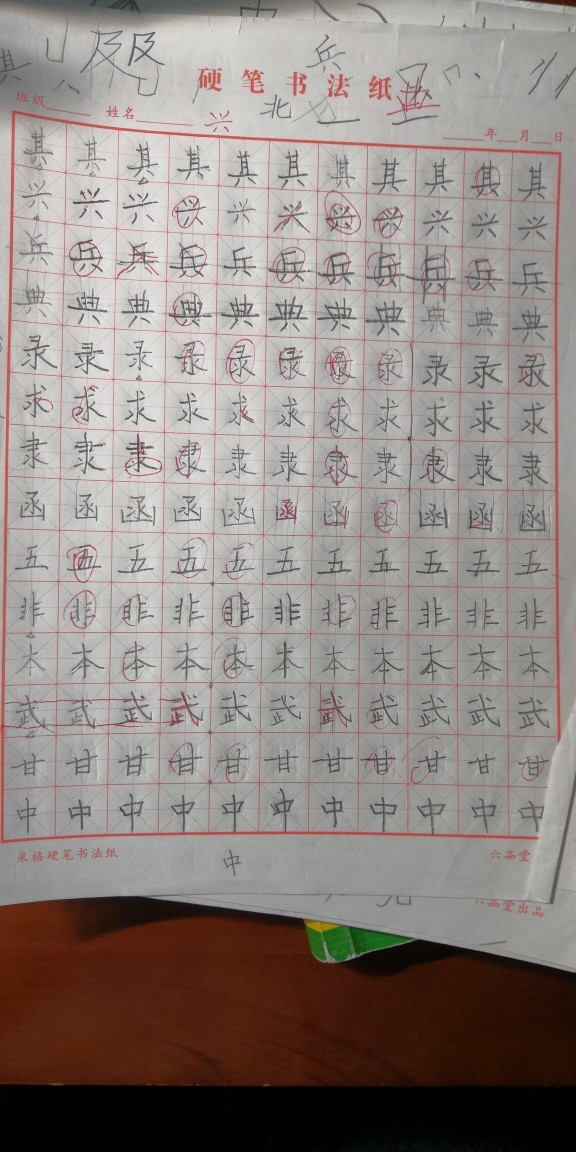 及及
其 兵
硬笔书法纸
班级 姓名 兴 北
年 月 日
其其其其其其其其其其其
兴兴兴兴兴兴兴兴兴兴兴
兵兵兵兵兵兵兵兵兵兵兵
典典典典典典典典典典典
录录录录录录录录录录录
求求求求求求求求求求求
隶隶隶隶隶隶隶隶隶隶隶
函函函函函函函函函函函
五五五五五五五五五五五
非非非非非非非非非非非
本本本本本本本本本本本
武武武武武武武武武武武
甘甘甘甘甘甘甘甘甘甘甘
中中中中中中中中中中中
米格硬笔书法纸 中 六品堂
六品堂出品